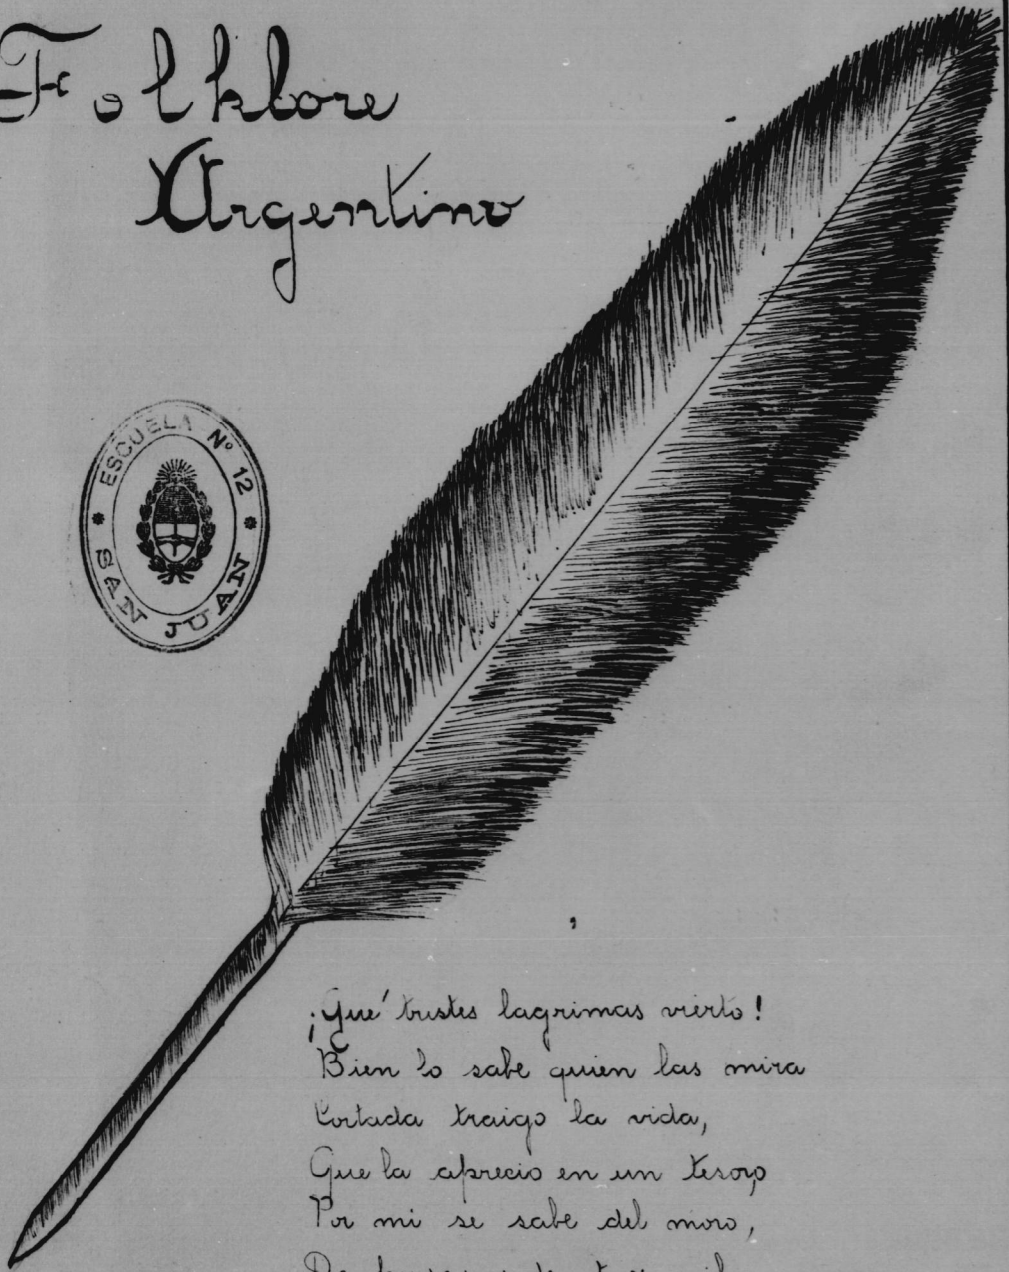 Folklore
Argentino
ESCUELA Nº 12
SAN JUAN
¡Que' tristes lagrimas vierto!
Bien lo sabe quien las mira
Cortada traigo la vida,
Que la aprecio en un tesoro,
Por mi se sabe del moro,